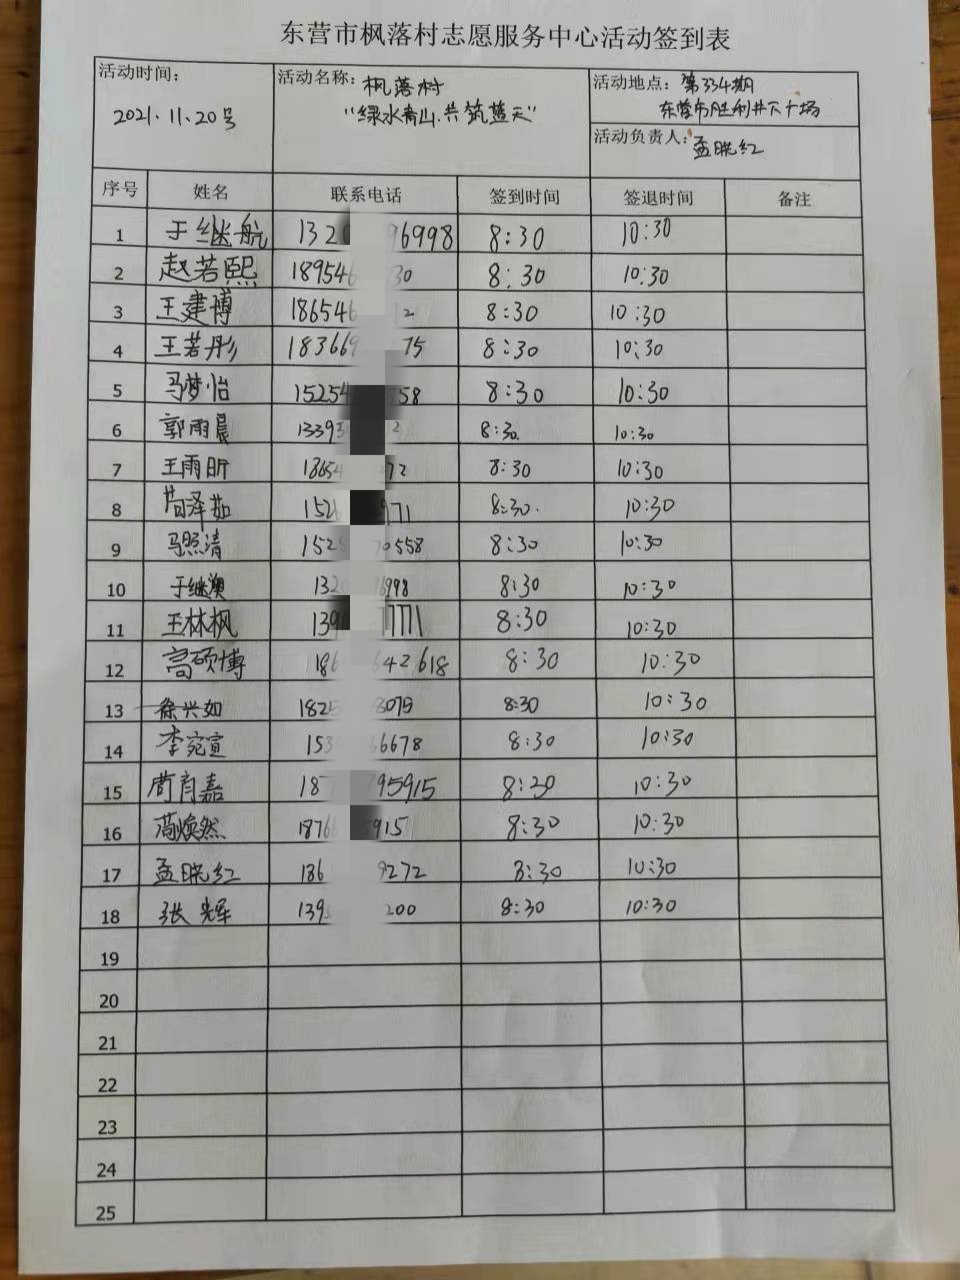 东营市枫落村志愿服务中心活动签到表
活动时间： 2021.11.20号
活动名称： 枫落村
"绿水青山.共筑蓝天"
活动地点： 第334期
东营市胜利井下广场
活动负责人： 孟晓红
序号 姓名 联系电话 签到时间 签退时间 备注
1 于继航 132 96998 8:30 10:30
2 赵若熙 18954 30 8:30 10:30
3 王建博 18654 2 8:30 10:30
4 王若彤 18366 75 8:30 10:30
5 马梦怡 15254 558 8:30 10:30
6 郭雨晨 1339 2 8:30. 10:30
7 王雨昕 1865 272 8:30 10:30
8 苟泽茹 152 971 8:30. 10:30
9 马照清 152 70558 8:30 10:30
10 于继澳 132 6998 8:30 10:30
11 王林枫 139 7771 8:30 10:30
12 高硕博 18 642618 8:30 10:30
13 徐兴如 1825 8075 8:30 10:30
14 李宛宣 153 66678 8:30 10:30
15 苟育嘉 187 795915 8:30 10:30
16 苟焕然 1876 5915 8:30 10:30
17 孟晓红 186 9272 8:30 10:30
18 张辉 139 200 8:30 10:30
19
20
21
22
23
24
25